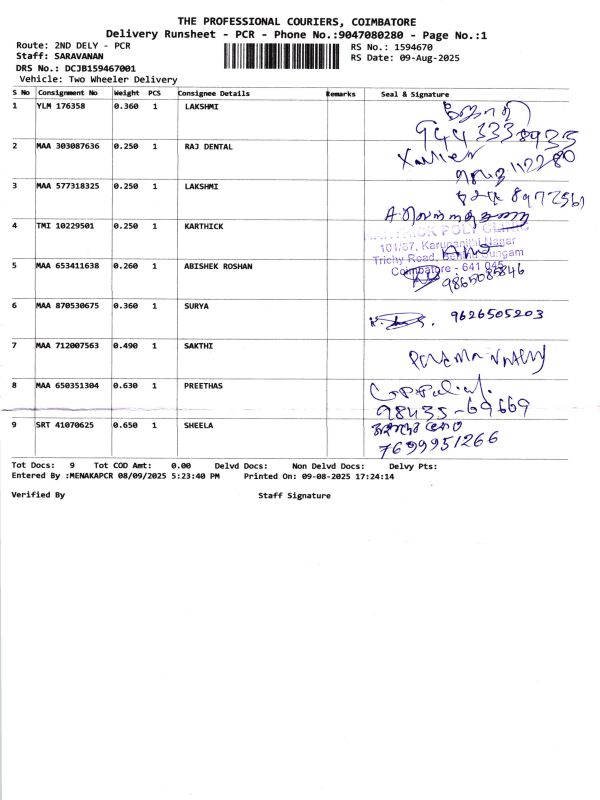 THE PROFESSIONAL COURIERS, COIMBATORE
Delivery Runsheet - PCR - Phone No.:9047080280 - Page No.:1
Route: 2ND DELY - PCR
RS No.: 1594670
Staff: SARAVANAN
RS Date: 09-Aug-2025
DRS No.: DCJB159467001
Vehicle: Two Wheeler Delivery
S No Consignment No Weight PCS Consignee Details Remarks Seal & Signature
1 YLM 176358 0.360 1 LAKSHMI
9443338935
2 MAA 303087636 0.250 1 RAJ DENTAL
Xavier
112280
3 MAA 577318325 0.250 1 LAKSHMI
4 TMI 10229501 0.250 1 KARTHICK
POLY CLINIC
101/57, Karunanithi Nagar
Trichy Road, Sungam
Coimbatore - 641 045
5 MAA 653411638 0.260 1 ABISHEK ROSHAN
9865085846
6 MAA 870530675 0.360 1 SURYA
9626505203
7 MAA 712007563 0.490 1 SAKTHI
8 MAA 650351304 0.630 1 PREETHAS
98435-69669
9 SRT 41070625 0.650 1 SHEELA
7699951266
Tot Docs: 9 Tot COD Amt: 0.00 Delvd Docs: Non Delvd Docs: Delvy Pts:
Entered By :MENAKAPCR 08/09/2025 5:23:40 PM Printed On: 09-08-2025 17:24:14
Verified By Staff Signature